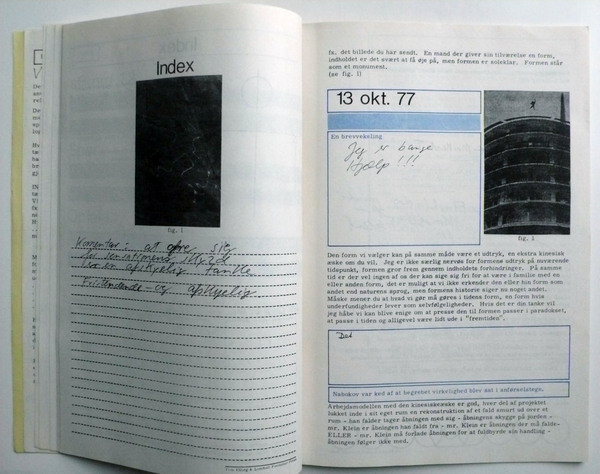 Index
fig. 1
Komentar - at ofre sig
for sensationens skyld
er en afskyelig tanke
Fristendende - og afskyelig
fx. det billede du har sendt. En mand der giver sin tilværelse en form,
indholdet er det svært at få øje på, men formen er soleklar. Formen står
som et monument.
(se fig. 1)
13 okt. 77
En brevveksling
Jeg er bange
Hjælp !!!
fig. 1
Den form vi vælger kan på samme måde være et udtryk, en ekstra kinesisk
æske om du vil. Jeg er ikke særlig nervøs for formens udtryk på nuværende
tidspunkt, formen gror frem gennem indholdets forhindringer. På samme
tid er der vel ingen af os der kan sige sig fri for at være i familie med en
eller anden form, det er muligt at vi ikke erkender den eller hin form som
andet end naturens sprog, men formens historie siger nu noget andet.
Måske mener du at hvad vi gør må gøres i tidens form, en form hvis
underfundigheder lever som selvfølgeligheder. Hvis det er din tanke vil
jeg håbe vi kan blive enige om at presse den til formen passer i paradokset,
at passe i tiden og alligevel være lidt ude i "fremtiden".
Død
Nabokov var ked af at begrebet virkelighed blev sat i anførselstegn.
Arbejdsmodellen med den kinesiskeæske er god, hver del af projektet
lukket inde i sit eget rum en rekonstruktion af et fald smurt ud over et
rum - han falder tager åbningen med sig - åbningens skygge på jorden -
mr. Klein er åbningen han faldt fra - mr. Klein er åbningen der må falde-
ELLER - mr. Klein må forlade åbningen for at fuldbyrde sin handling -
åbningen følger ikke med.